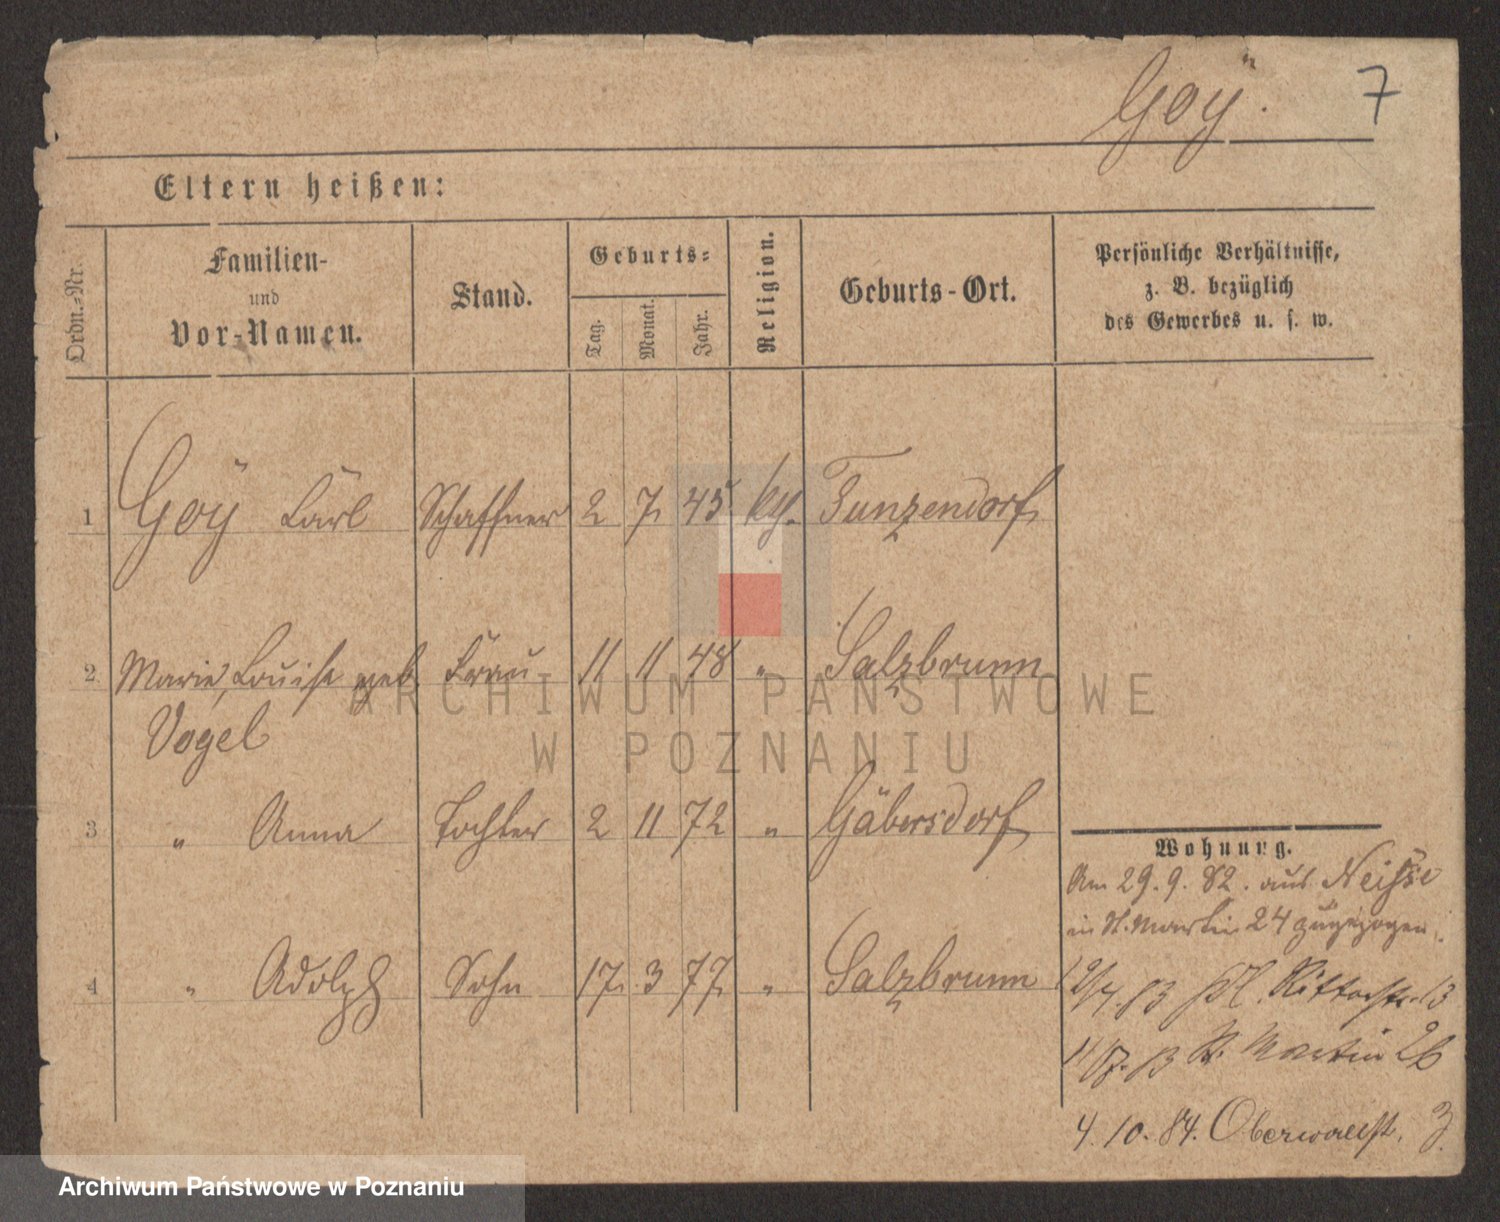 Goÿ.
7
Eltern heißen:
Ordn.-Nr.
Familien-
und
Vor-Namen.
Stand.
Geburts-
Tag.
Monat.
Jahr.
Religion.
Geburts-Ort.
Persönliche Verhältnisse,
z. B. bezüglich
des Gewerbes u. s. w.
1 Goÿ Carl Schaffner 2 7. 45 Tunzendorf
2. Marie, Louise geb. Frau 11 11 48 " Salzbrunn
Vogel
3 " Anna Tochter 2 11 72 " Gäbersdorf
4 " Adolph Sohn 17. 3 77. " Salzbrunn
Wohnung.
Am 29. 9. 82. aus Neisse
in St. Martin 24 zugezogen.
83 Kl. Ritterstr. 13
83 St. Martin 26
4. 10. 84. Oberwallstr. 3.
ARCHIWUM PAŃSTWOWE
W POZNANIU
Archiwum Państwowe w Poznaniu